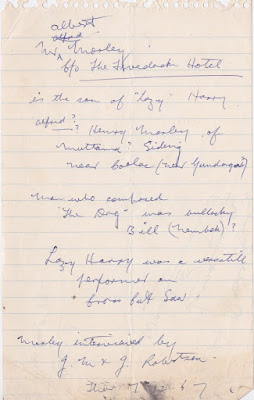 albert
alfred
Mr Morley
c/o The Hotel
is the son of "Lazy" Harry
alfred?
? Henry Morley of
"Muttama" Siding
near Coolac (near Gundagai)
Man who composed
"The Dog" was bullocky
Bill (Nimbok)?
Lazy Harry was a versatile
performer on
"Cross Cut Saw"
Morley interviewed by
J. M & J. Robertson